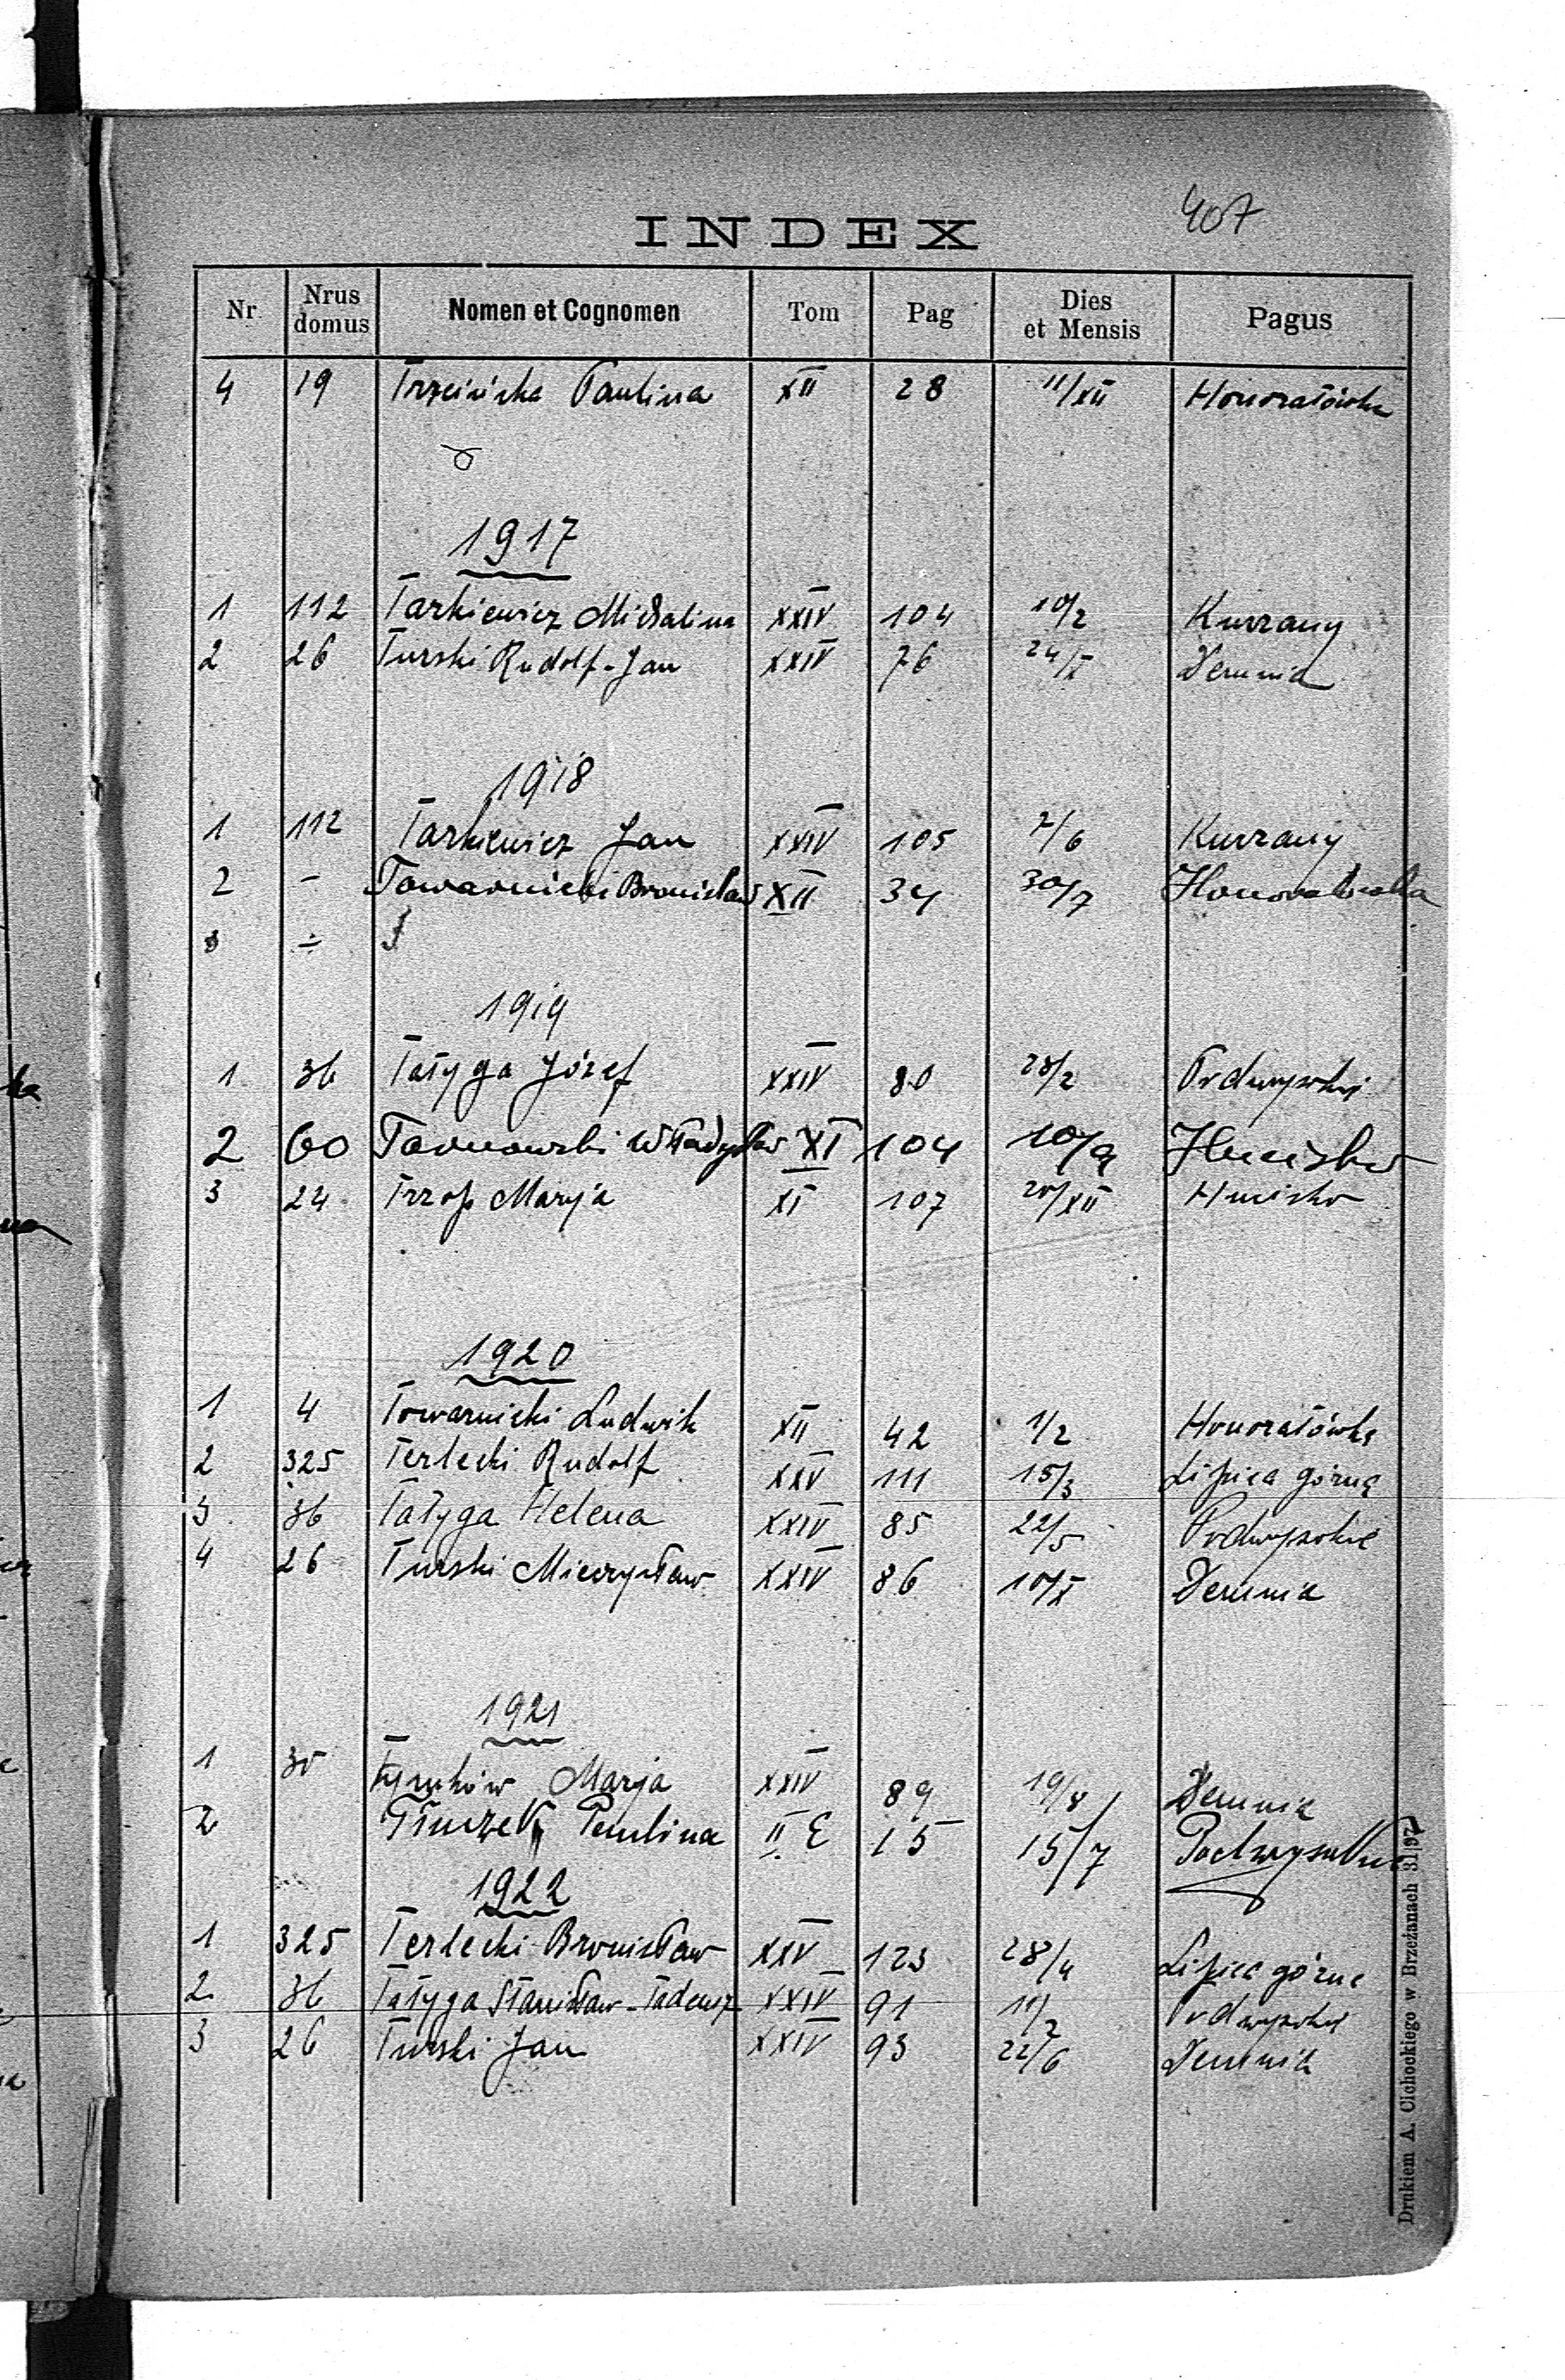 407
INDEX
Nr Nrus domus Nomen et Cognomen Tom Pag Dies et Mensis Pagus
4 19 Trzcińska Paulina XII 28 11/XII Honoratówka
1917
1 112 Tarkiewicz Michalina XXIV 104 10/2 Kurzany
2 26 Turski Rudolf-Jan XXIV 76 24/X Demnia
1918
1 112 Tarkiewicz Jan XXIV 105 7/6 Kurzany
2 - Towarnicki Bronisław XII 34 30/7 Honoratówka
3
1919
1 36 Tatyga Józef XXIV 80 28/2 Podwysokie
2 60 Tarnowski Władysław XI 104 10/9 Hucisko
3 24 Trzop Marja XI 107 20/XII Hucisko
1920
1 4 Towarnicki Ludwik XII 42 1/2 Honoratówka
2 325 Terlecki Rudolf XXV 111 15/3 Lipica górna
3 36 Tatyga Helena XXIV 85 22/5 Podwysokie
4 26 Turski Mieczysław XXIV 86 10/X Demnia
1921
1 30 Marja XXIV 89 19/8 Demnia
2 Paulina II E 15 15/7 Podwysokie
1922
1 325 Terlecki Bronisław XXV 123 28/4 Lipica górna
2 36 Tatyga Stanisław-Tadeusz XXIV 91 11/2 Podwysokie
3 26 Turski Jan XXIV 93 22/6 Demnia
Drukiem A. Cichockiego w Brzeżanach 31|97